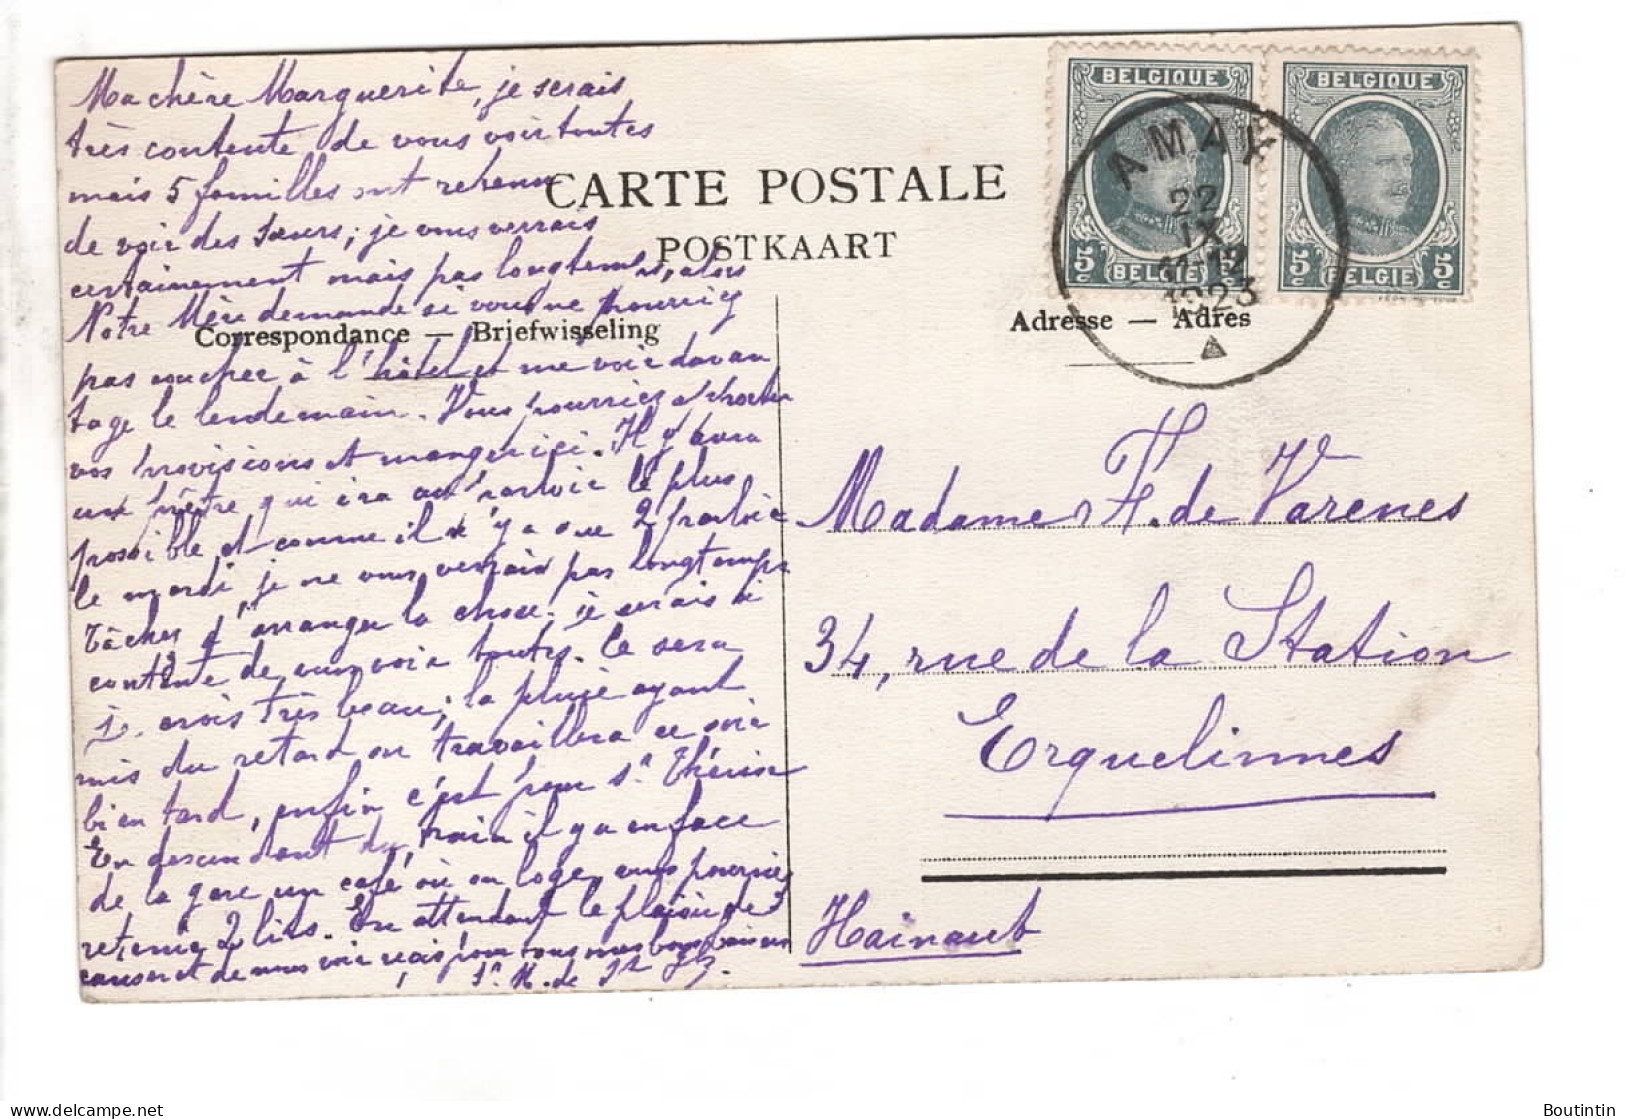 Ma chère Marguerite, je serais
très contente de vous voir toutes
mais 5 familles ont retenu
de voir des Sœurs; je vous verrais
certainement mais pas longtemps, alors
Notre Mère demande si vous ne pourriez
pas coucher à l'hôtel et me voir davan
tage le lendemain. Vous pourriez apporter
vos provisions et manger ici. Il y aura
un prêtre qui ira au parloir le plus
possible et comme il n'y a que 2 parloirs
le mardi, je ne vous verrais pas longtemps
tâchez d'arranger la chose. je serais si
contente de vous voir toutes. Ce sera
je crois très beau; la pluie ayant
mis du retard on travaillera ce soir
bien tard, enfin c'est pour Sr Thérèse
En descendant du train il y a en face
de la gare un café où on loge, vous pourriez
retenir 2 lits. En attendant le plaisir de
causer et de vous voir reçois pour vous mes bons baisers
Sr M. de
CARTE POSTALE
POSTKAART
Correspondance — Briefwisseling
Adresse — Adres
BELGIQUE
5c BELGIE 5c
BELGIQUE
5c BELGIE 5c
AMAY
22
IX
11-12
1923
Madame F. de Varenes
34, rue de la Station
Erquelinnes
Hainaut
Boutintin